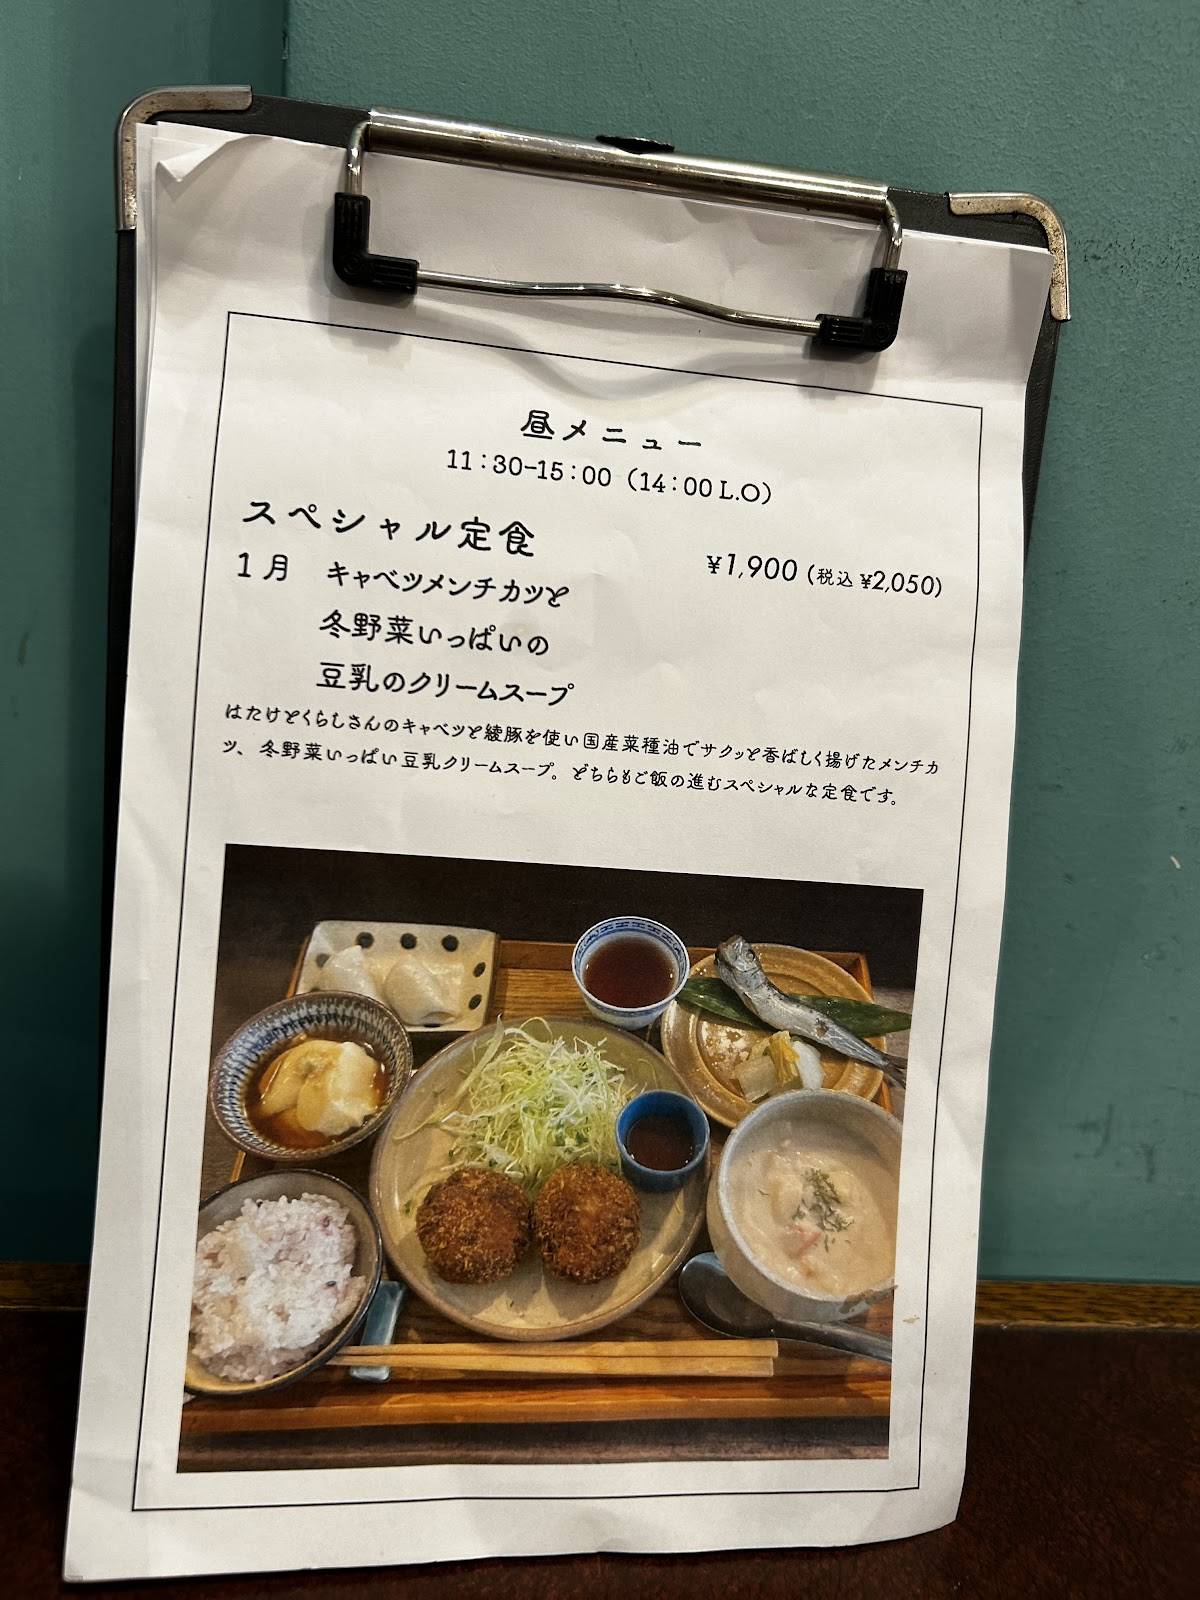 昼メニュー
11：30-15：00（14：00 L.O）
スペシャル定食
¥1,900 (税込 ¥2,050)
1月 キャベツメンチカツと
冬野菜いっぱいの
豆乳のクリームスープ
はたけとくらしさんのキャベツと綾豚を使い国産菜種油でサクッと香ばしく揚げたメンチカ
ツ、冬野菜いっぱい豆乳クリームスープ。どちらもご飯の進むスペシャルな定食です。